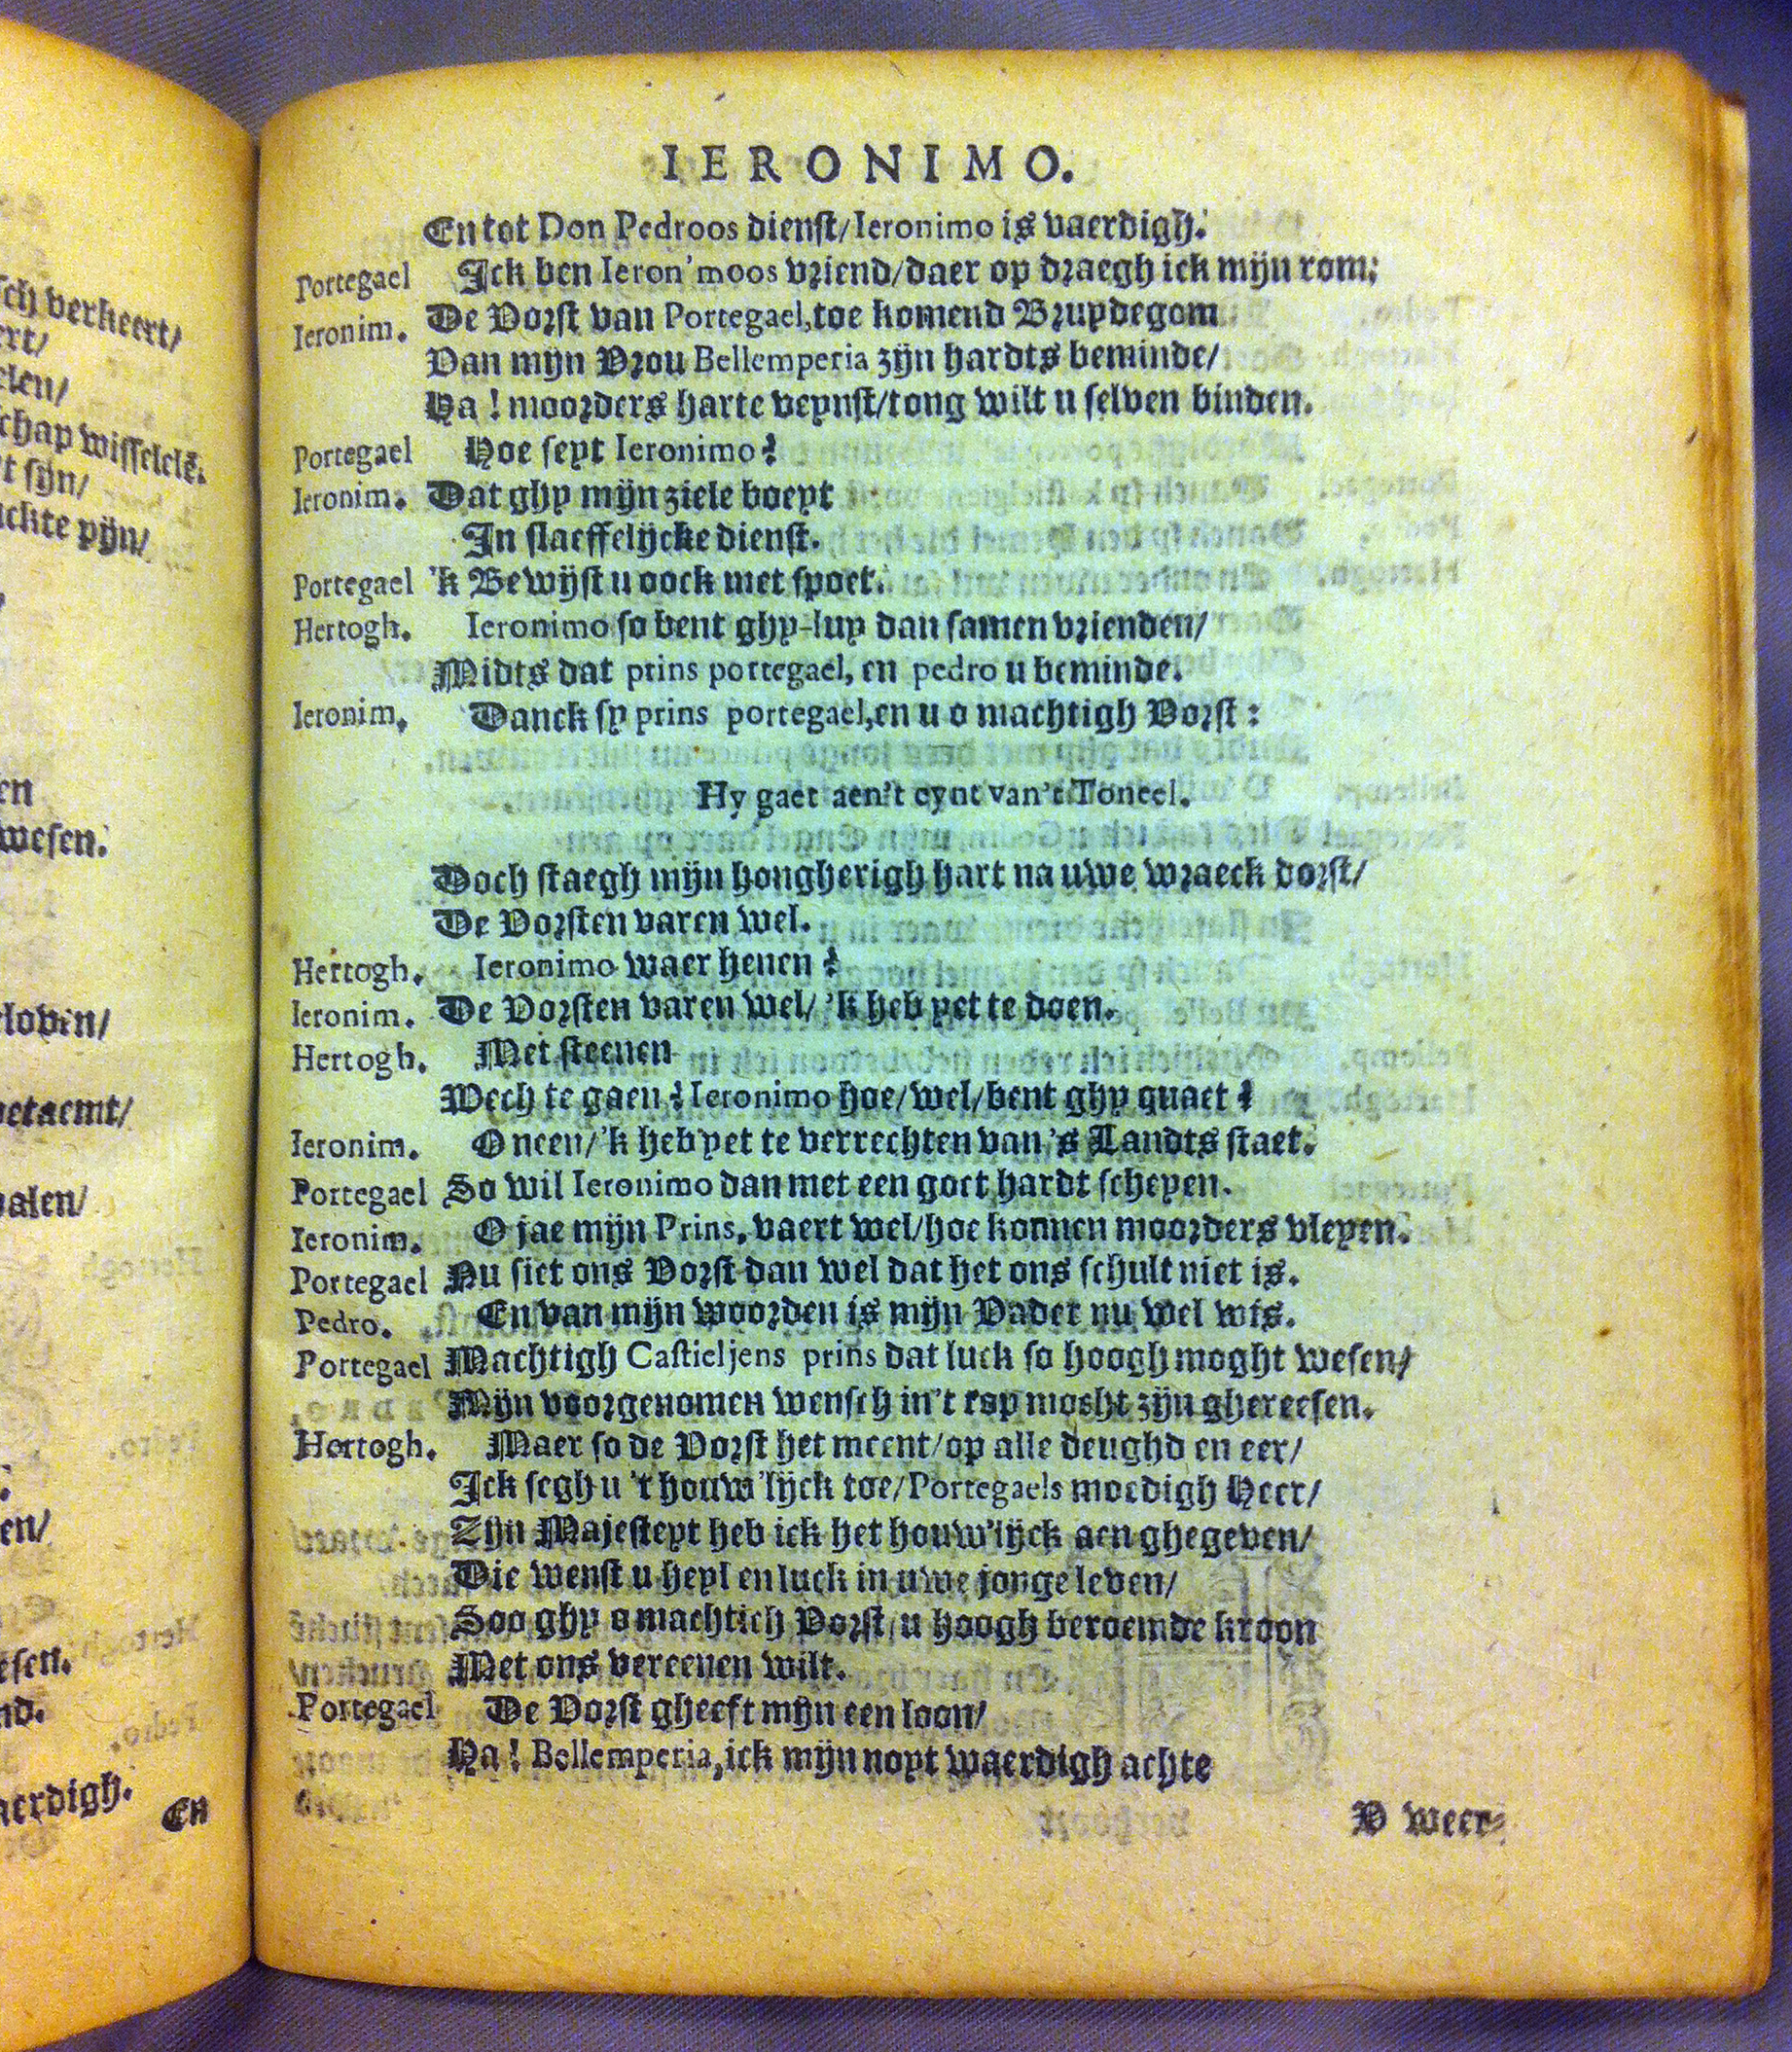 sch verkeert/
ert/
elen/
schap wisselele.
t sijn/
uckte pijn/
en
wesen.
loven/
betaemt/
palen/
en/
esen.
nd.
aerdigh.
En
IERONIMO.
En tot Don Pedroos dienst/Ieronimo is vaerdigh.
Portegael Ick ben Ieron'moos vriend/daer op draegh ick mijn rom;
Ieronim. De Vorst van Portegael, toe komend Bruydegom
Van mijn Vrou Bellemperia zijn hardts beminde/
Ha! moorders harte veynst/tong wilt u selven binden.
Portegael Hoe seyt Ieronimo?
Ieronim. Dat ghy mijn ziele boeyt
In slaeffelijcke dienst.
Portegael 'k Bewijst u oock met spoet.
Hertogh. Ieronimo so bent ghy-luy dan samen vrienden/
Midts dat prins portegael, en pedro u beminde.
Ieronim. Danck sy prins portegael, en u o machtigh Vorst:
Hy gaet aen't eynt van't Toneel.
Doch staegh mijn hongherigh hart na uwe wraeck dorst/
De Vorsten varen wel.
Hertogh. Ieronimo waer henen?
Ieronim. De Vorsten varen wel/ 'k heb yet te doen.
Hertogh. Met steenen
Wech te gaen? Ieronimo hoe/wel/bent ghy quaet?
Ieronim. O neen/'k heb yet te verrechten van 's Landts staet.
Portegael So wil Ieronimo dan met een goet hardt scheyen.
Ieronim. O jae mijn Prins, vaert wel/hoe konnen moorders vleyen.
Portegael Nu siet ons Vorst dan wel dat het ons schult niet is.
Pedro. En van mijn woorden is mijn Vader nu wel wis.
Portegael Machtigh Castieljens prins dat luck so hoogh moght wesen/
Mijn voorgenomen wensch in't top mocht zijn ghereesen.
Hertogh. Maer so de Vorst het meent/op alle deughd en eer/
Ick segh u 't houw'lijck toe/Portegaels moedigh Heer/
Zijn Majesteyt heb ick het houw'lijck aen ghegeven/
Die wenst u heyl en luck in uwe jonge leven/
Soo ghy o machtich Vorst/u hoogh beroemde kroon
Met ons vereenen wilt.
Portegael De Vorst gheeft mijn een loon/
Ha! Bellemperia, ick mijn noyt waerdigh achte
D weer-